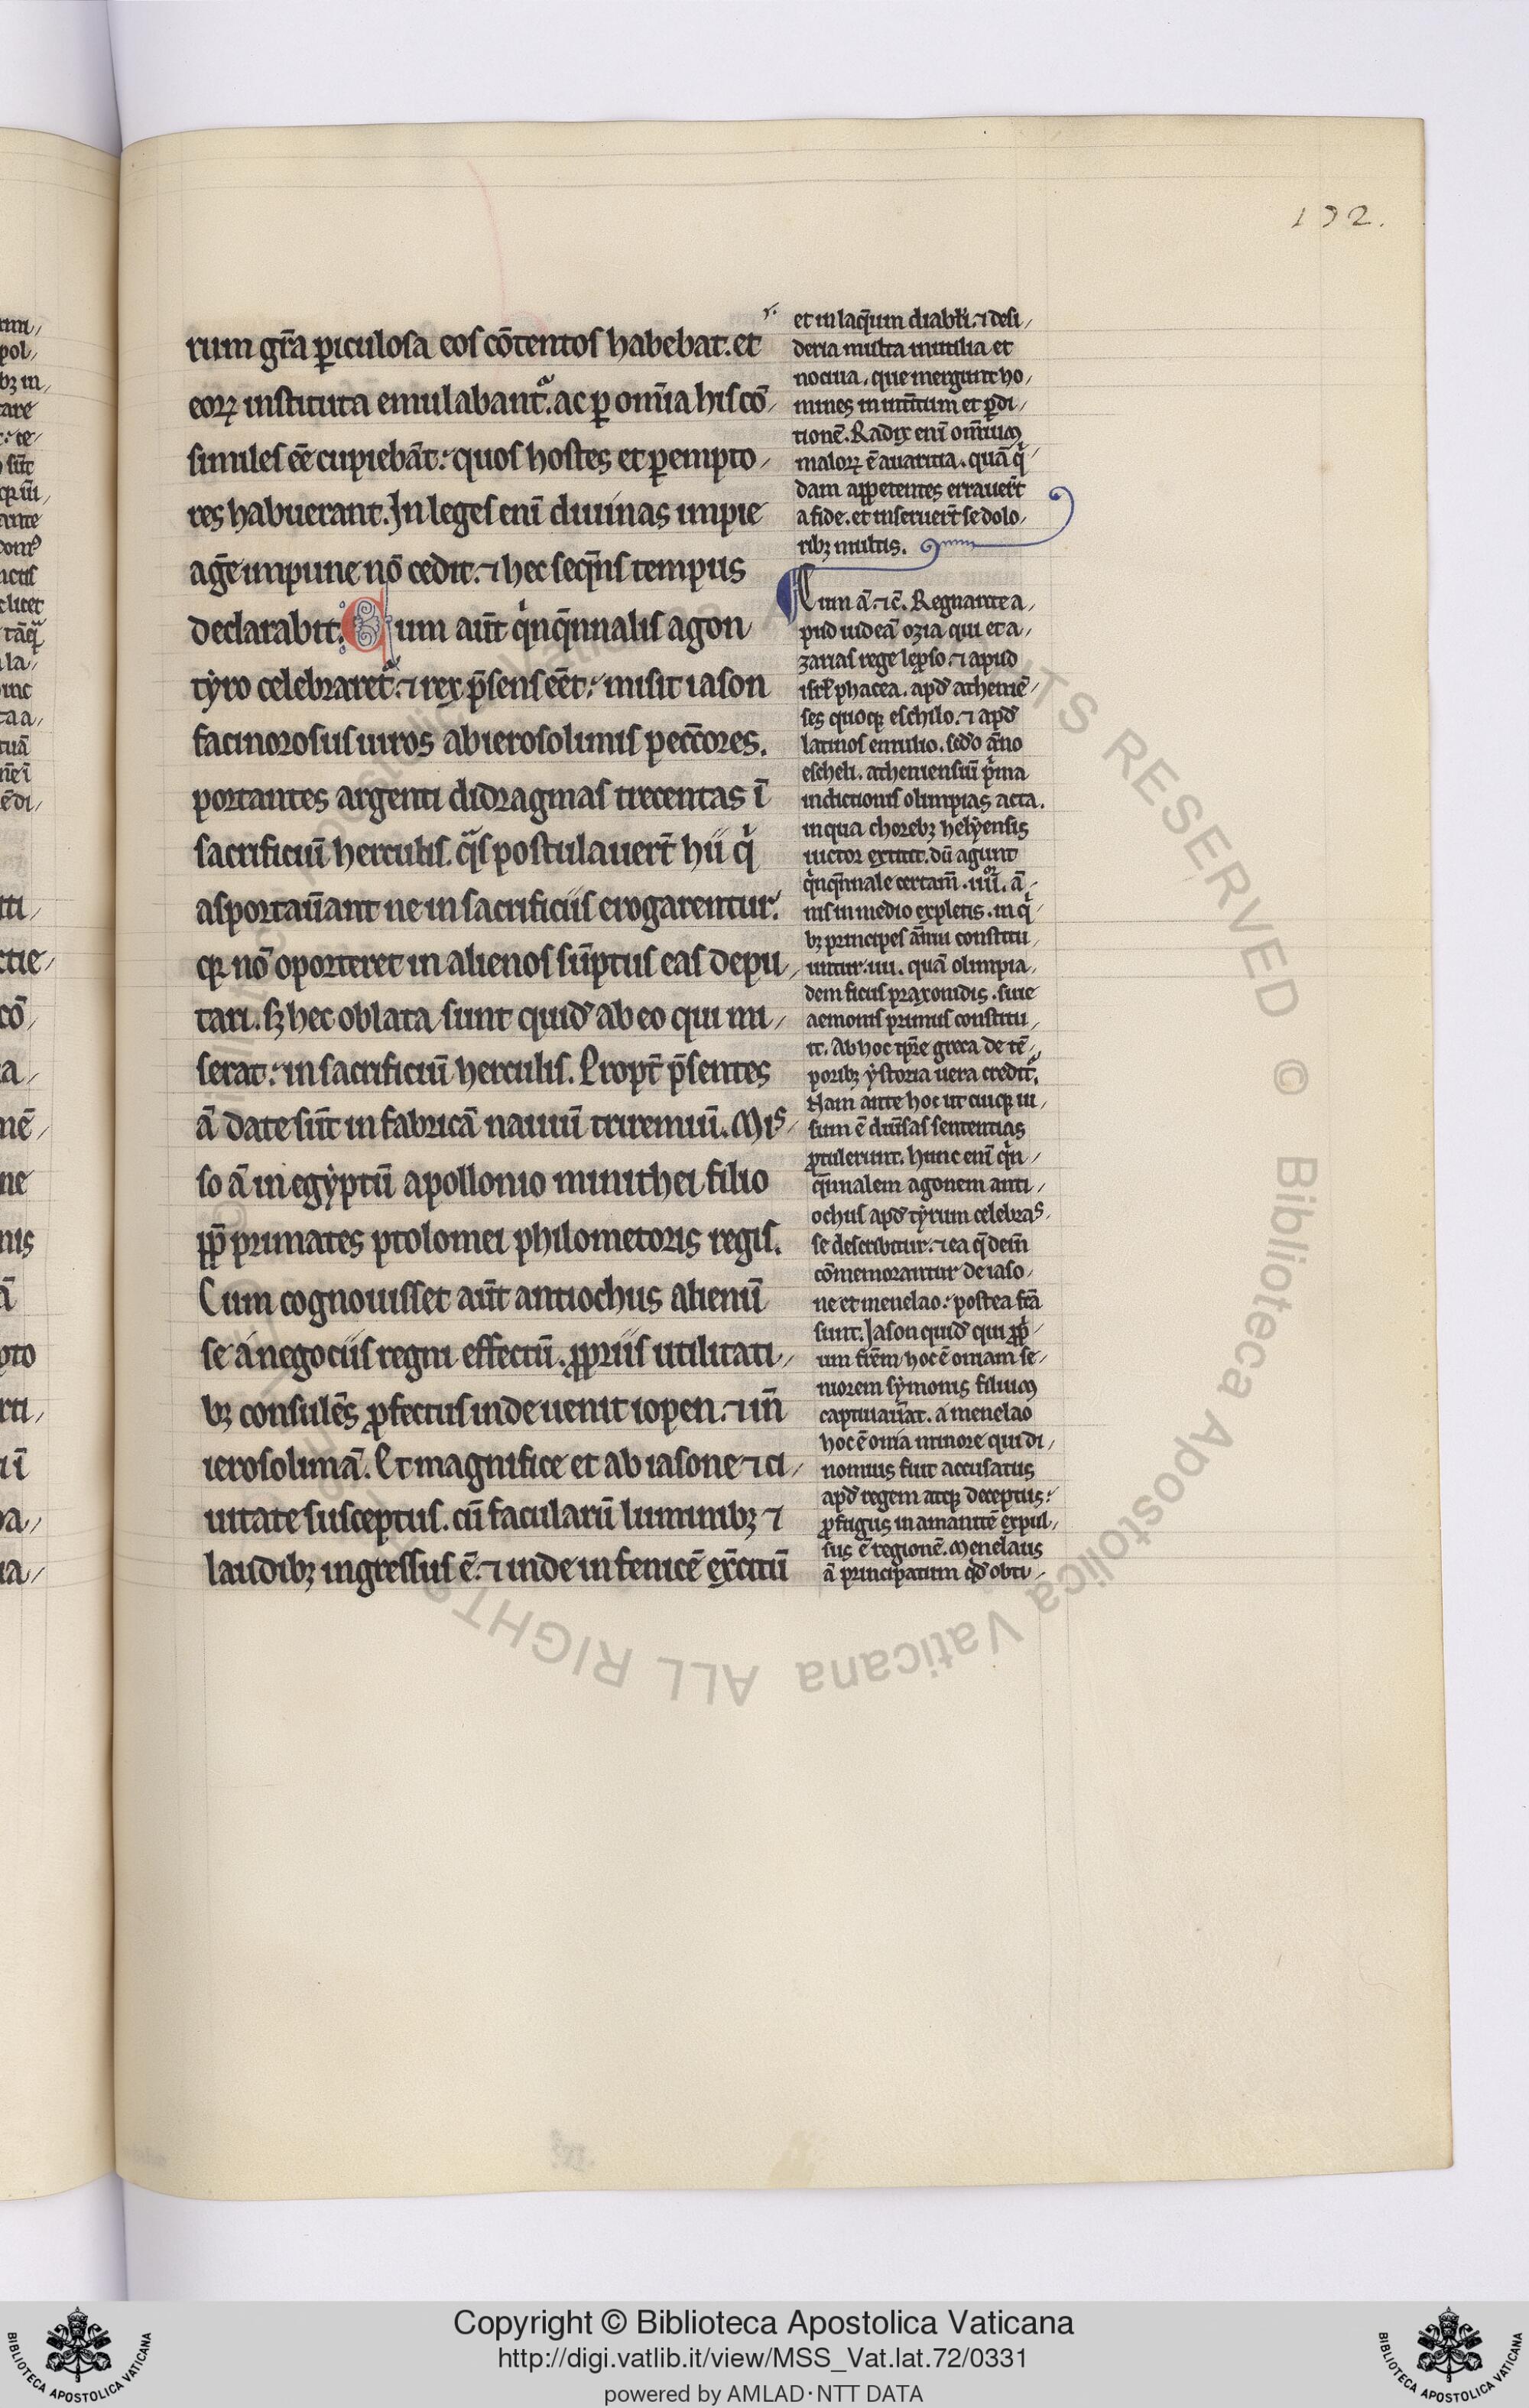 192.
rum gr̄a ꝑiculosa eos cōtentos habebat. et
eorꝝ instituta emulabant᷑. ac ꝑ om̄ia his cō
similes eē cupiebāt: quos hostes et ꝑempto
res habuerant. In leges enī diuinas impie
aḡe impune nō cedit. ⁊ hec seq̄ns tempus
declarabit. Cum aūt qⁱnq̄nnalis agon
tẏro celebraret᷑. ⁊ rex p̄sens eēt: misit iason
facinorosus uiros ab ierosolimis pecc̄ores.
portantes argenti didragmas trecentas ī
sacrificiū herculis. q̄s postulauer̄t hii qⁱ
asportau̅ant ne in sacrificiis erogarentur.
qꝛ nō oporteret in alienos sūptus eas depu
tari. sꝫ hec oblata sunt quid̄ ab eo qui mi
serat: in sacrificiū herculis. Propt̄ p̄sentes
ā date sūt in fabricā nauiū triremiū. Mis
so ā in egẏptū apollonio minithei filio
ꝓp̄ primates ptolomei philometoris regis.
Cum cognouisset aūt antiochus alienū
se a negociis regni effectū. ꝓpriis utilitati
bꝫ consulēs ꝓfectus inde uenit iopen. ⁊ in̄
ierosolimā. Et magnifice et ab iasone ⁊ ci
uitate susceptus. cū facularū luminibꝫ ⁊
laudibꝫ ingressus ē. ⁊ inde in fenicē exc̄itū
et in laq̄um diabl̄i. ⁊ desi
deria multa inutilia et
nociua. que mergunt ho
mines in int̄itum et ꝑdi
tionē. Radix enī om̄ium
malorꝝ ē auaritia. quā qⁱ
dam appetentes errauer̄t
a fide. et inseruer̄t se dolo
ribꝫ multis.
Cum ā. ⁊c̄. Regnante a
pud iudeā ozia qui et a
zarias rege lep̄so. ⁊ apud
isrl̄ phacea. apd̄ atheniē
ses quoqꝫ eschilo. ⁊ apd̄
latinos emulio. sed̄o āno
escheli. atheniensiū pⁱma
indictionis olimpias acta.
in qua chorebꝫ helẏensis
uictor extitit. dū agunt
qⁱnq̄nnale certam̄. iiiior. ā
nis in medio expletis. in qⁱ
bꝫ principes ānui constitu
untur. iiii. quā olimpia
dem ficus praxonidis. siue
aemonis primus constitu
it. Ab hoc tp̄re greca de tē
poribꝫ ẏstoria uera credit᷑.
Nam ante hoc ut cuiqꝫ ui
sum ē diu̅sas sententias
ꝓtulerunt. Hunc enī qⁱn
q̄nnalem agonem anti
ochus apd̄ tẏrum celebras
se describitur. ⁊ ea q̄ dem̄
cōmemorantur de iaso
ne et menelao: postea fc̄a
sunt. Iason quid̄ qui ꝓpⁱ
um fr̄em hoc ē oniam se
niorem sẏmonis filium
captiuau̅at. a menelao
hoc ē onia minore qui di
nomius fuit accusatus
apd̄ regem atqꝫ deceptus:
ꝓfugus in amanitē expul
sus ē regionē. Menelaus
ā principatum qd̄ obti
Copyright © Biblioteca Apostolica Vaticana
http://digi.vatlib.it/view/MSS_Vat.lat.72/0331
powered by AMLAD·NTT DATA